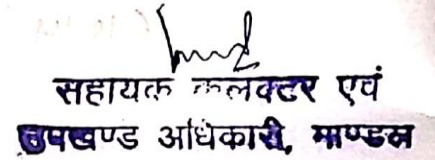 सहायक कलक्टर एवं
उपखण्ड अधिकारी, माण्डल